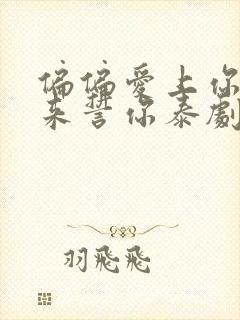 偏偏愛上你
来誓你泰劇
羽飛飛